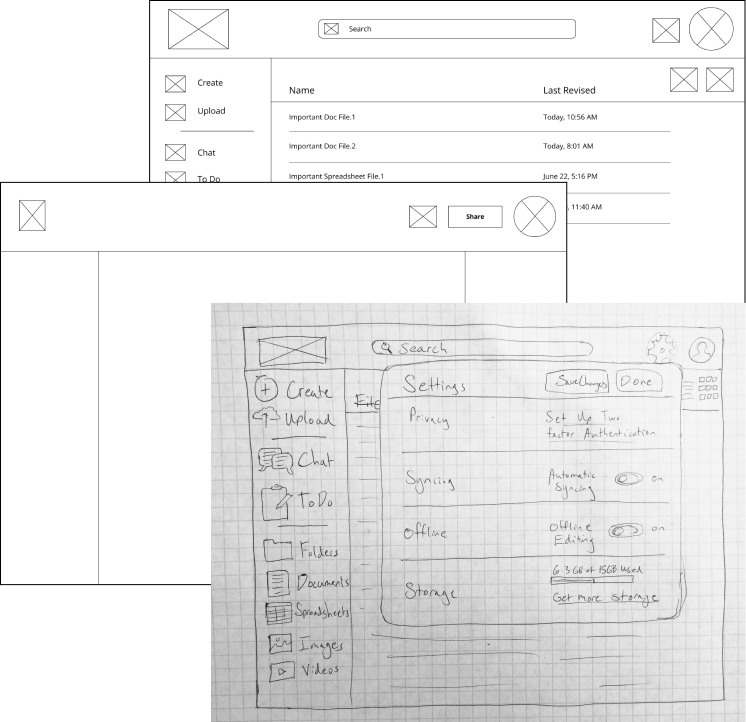 Search
Create
Upload
Chat
To Do
Name Last Revised
Important Doc File.1 Today, 10:56 AM
Important Doc File.2 Today, 8:01 AM
Important Spreadsheet File.1 June 22, 5:16 PM
, 11:40 AM
Share
Search
Create
Upload
Chat
To Do
Folders
Documents
Spreadsheets
Images
Videos
File
Settings Save Changes Done
Privacy Set Up Two
factor Authentication
Syncing Automatic
Syncing on
Offline Offline
Editing on
Storage 6.3 GB of 15GB Used
Get more storage